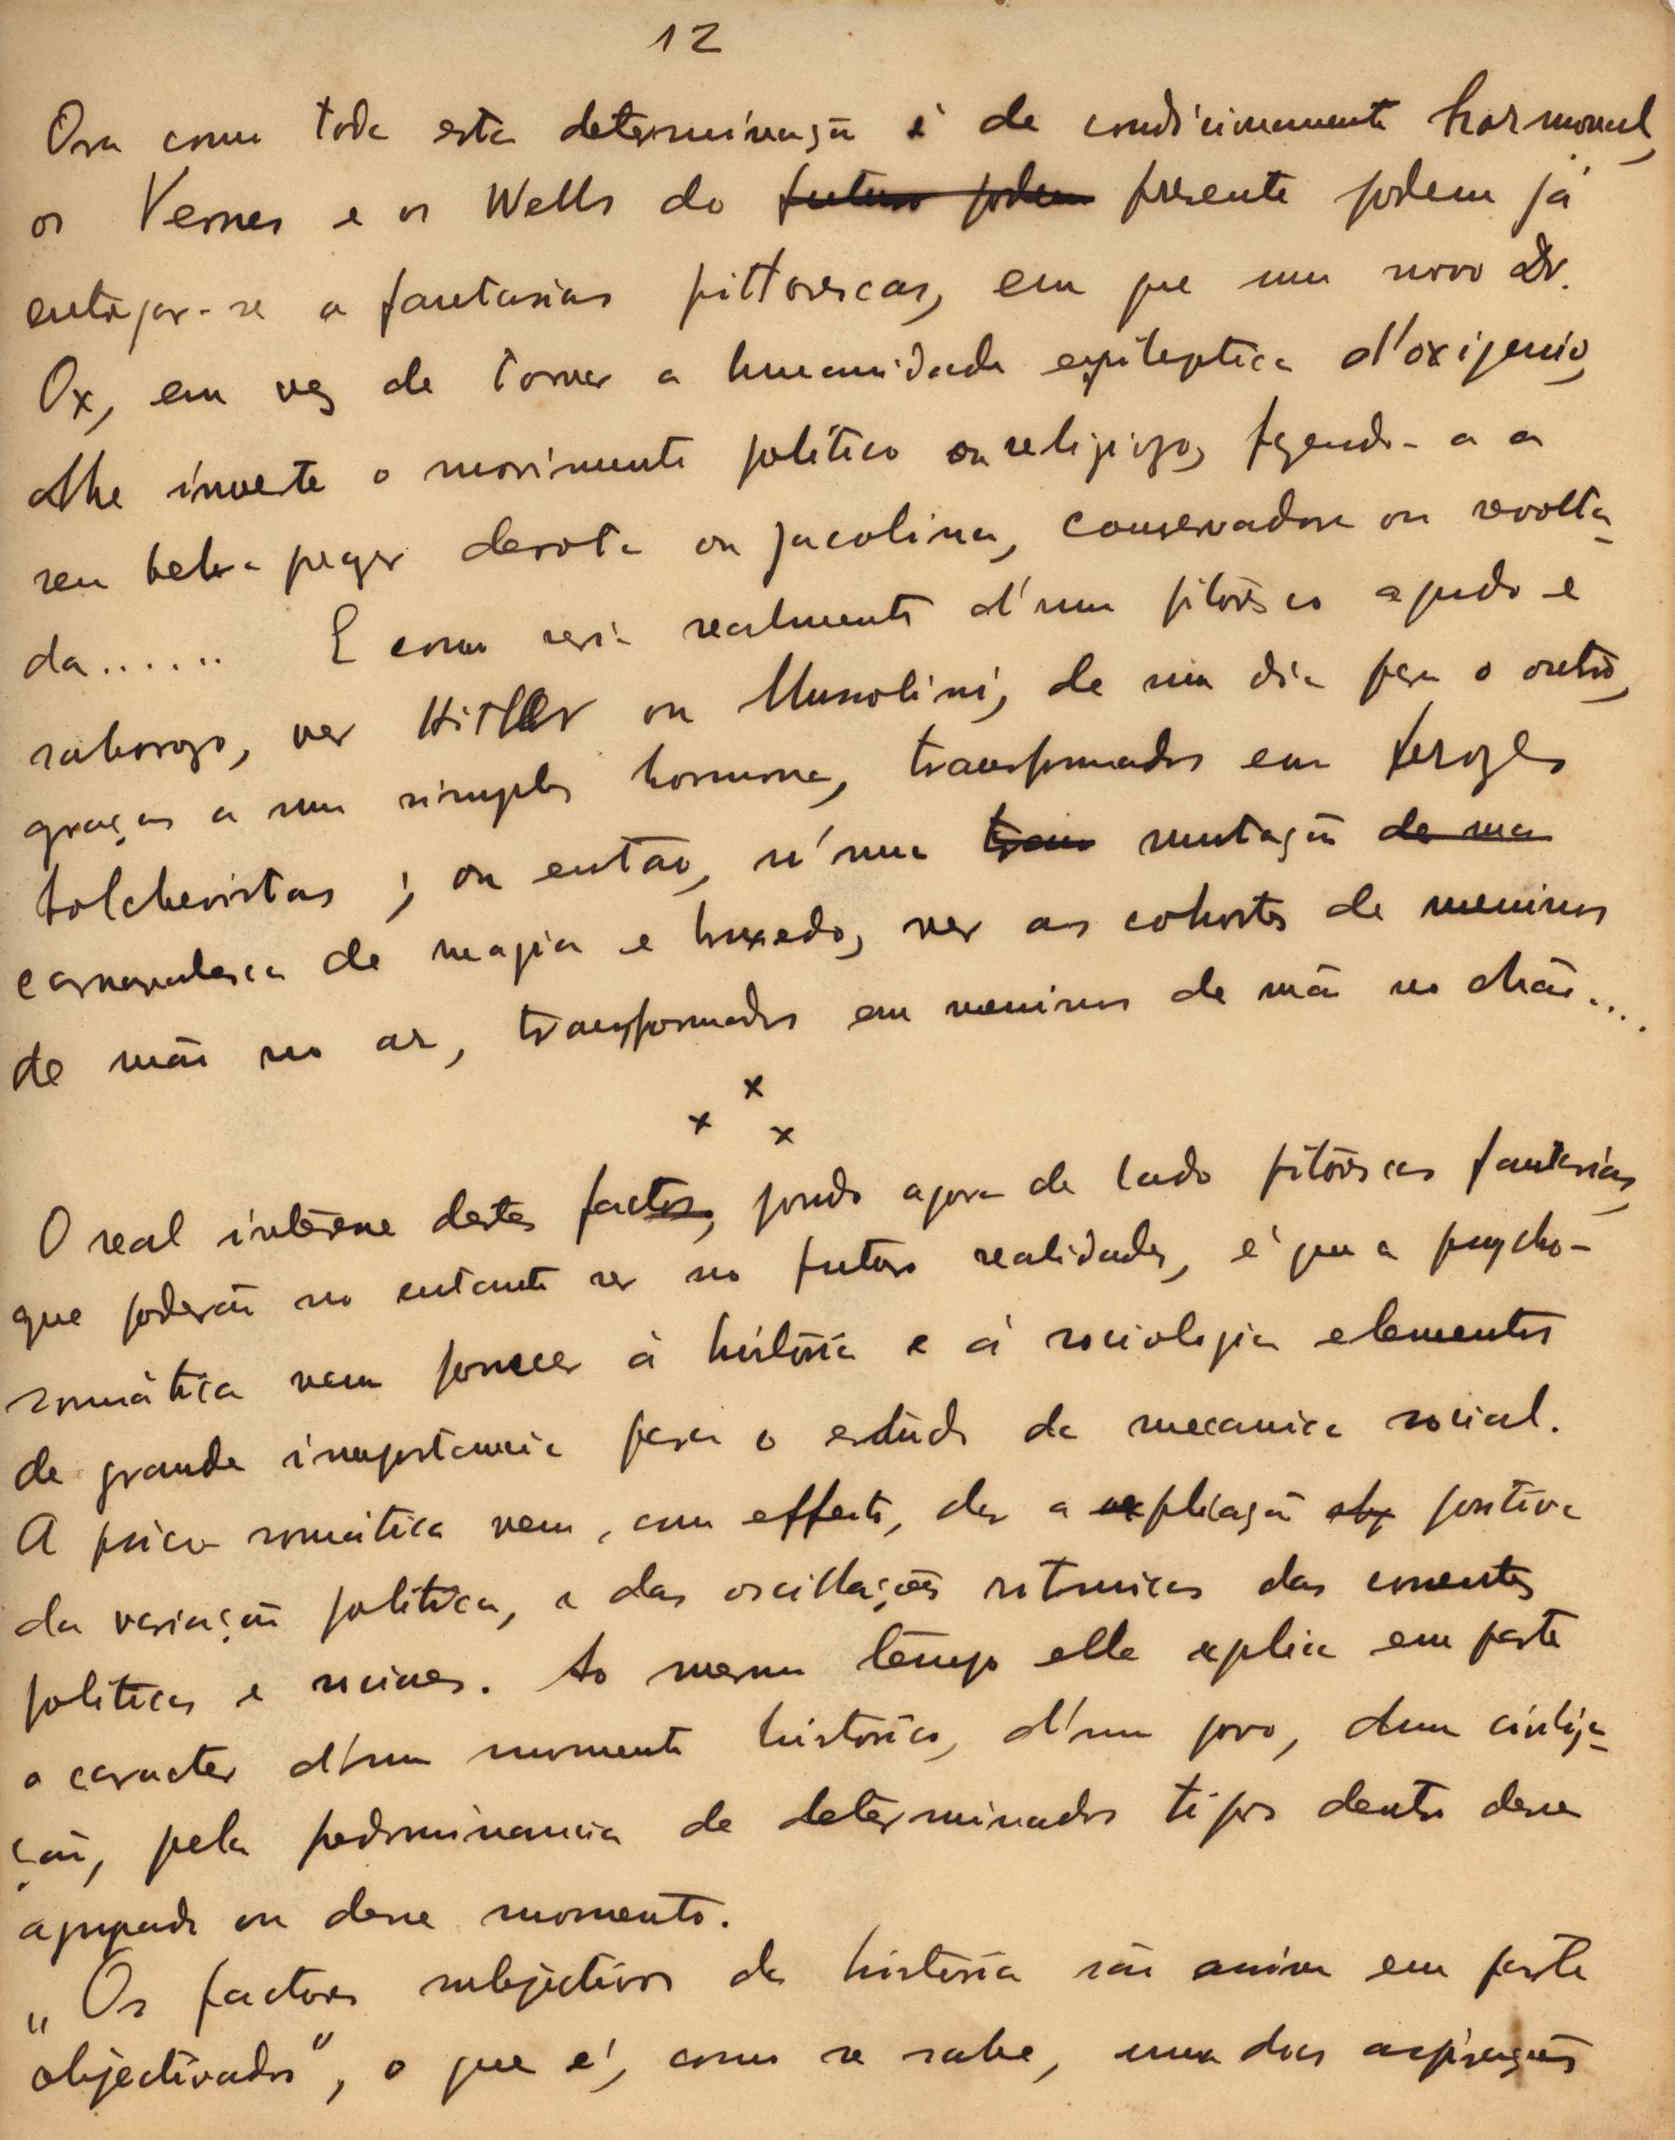 12
Ora como toda esta determinação é de condicionamento hormonal,
os Vernes e os Wells do futuro podem presente podem já
entregar-se a fantasias pittorescas, em que um novo Dr.
Ox, em vez de tornar a humanidade epileptica d'oxigenio,
lhe inverte o movimento político ou religiozo, fazendo-a a
seu bel-prazer devota ou jacobina, conservadora ou revolta-
da...... E como seria realmente d'um pitoresco agudo e
saborozo, ver Hitler ou Mussolini, de um dia para o outro,
graças a um simples hormona, transformados em ferozes
bolchevistas; ou então, n'uma trans mutação de ma
carnavalesca de magia e bruxedo, ver as cohortes de meninos
de mão no ar, transformados em meninos de mão no chão....
x
x x
O real interesse destes factos, pondo agora de lado pitorescas fantasias,
que poderão no entanto ser no futuro realidades, é que a psycho-
somática vem fornecer à história e á sociologia elementos
de grande importancia para o estudo da mecanica social.
A psico-somática vem, com effeito, dar a explicação obj positiva
da variação política, e das oscillações ritmicas das correntes
politicas e sociaes. Ao mesmo tempo ella explica em parte
o caracter d'um momento historico, d'um povo, duma civiliza-
ção, pela predominancia de determinados tipos dentro desse
agregado ou desse momento.
"Os factores subjectivos da história são assim em parte
objectivados", o que é, como se sabe, uma das aspirações